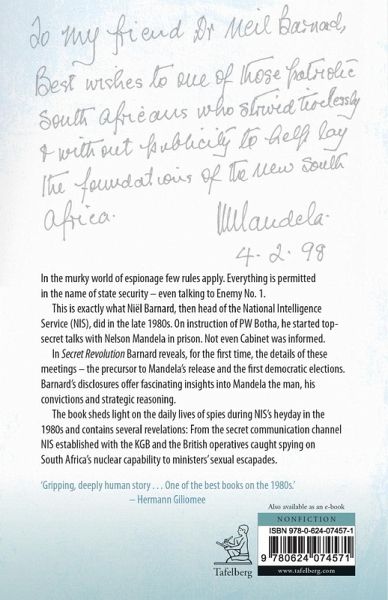 To my friend Dr Neil Barnard,
Best wishes to one of those patriotic
South Africans who strived tirelessly
& without publicity to help lay
the foundations of the new South
Africa.
NMandela.
4.2.98
In the murky world of espionage few rules apply. Everything is permitted
in the name of state security – even talking to Enemy No. 1.
This is exactly what Niël Barnard, then head of the National Intelligence
Service (NIS), did in the late 1980s. On instruction of PW Botha, he started top-
secret talks with Nelson Mandela in prison. Not even Cabinet was informed.
In Secret Revolution Barnard reveals, for the first time, the details of these
meetings – the precursor to Mandela's release and the first democratic elections.
Barnard's disclosures offer fascinating insights into Mandela the man, his
convictions and strategic reasoning.
The book sheds light on the daily lives of spies during NIS's heyday in the
1980s and contains several revelations: From the secret communication channel
NIS established with the KGB and the British operatives caught spying on
South Africa's nuclear capability to ministers' sexual escapades.
'Gripping, deeply human story . . . One of the best books on the 1980s.'
– Hermann Giliomee
Also available as an e-book
NONFICTION
ISBN 978-0-624-07457-1
9 780624 074571
www.tafelberg.com
Tafelberg